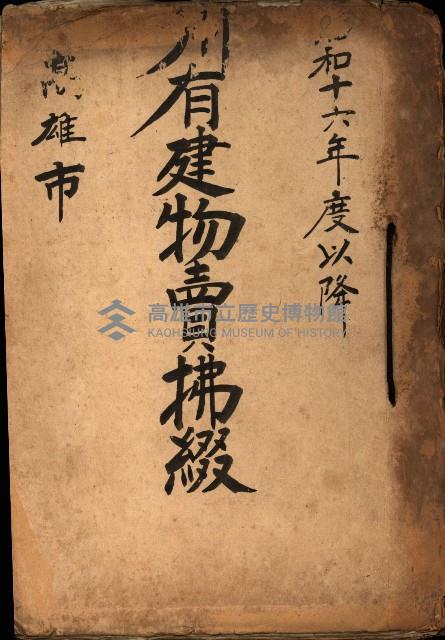 昭和十六年度以降
州有建物賣拂綴
高雄市
高雄市立歷史博物館
KAOHSIUNG MUSEUM OF HISTORY